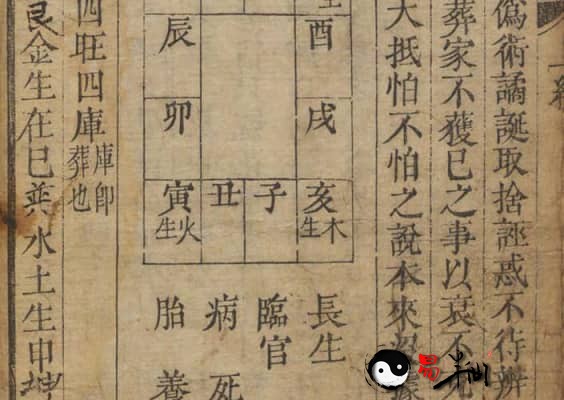 偽術譎誕取捨誣惑不待辨
葬家不獲已之事以衰不
大抵怕不怕之說本來
酉
戌
亥
木生
子
丑
辰
卯
寅
火生
長生
臨官
病 死
胎 養
四旺四庫
庫即
葬也
艮金生在巳水土生申坤
易半仙